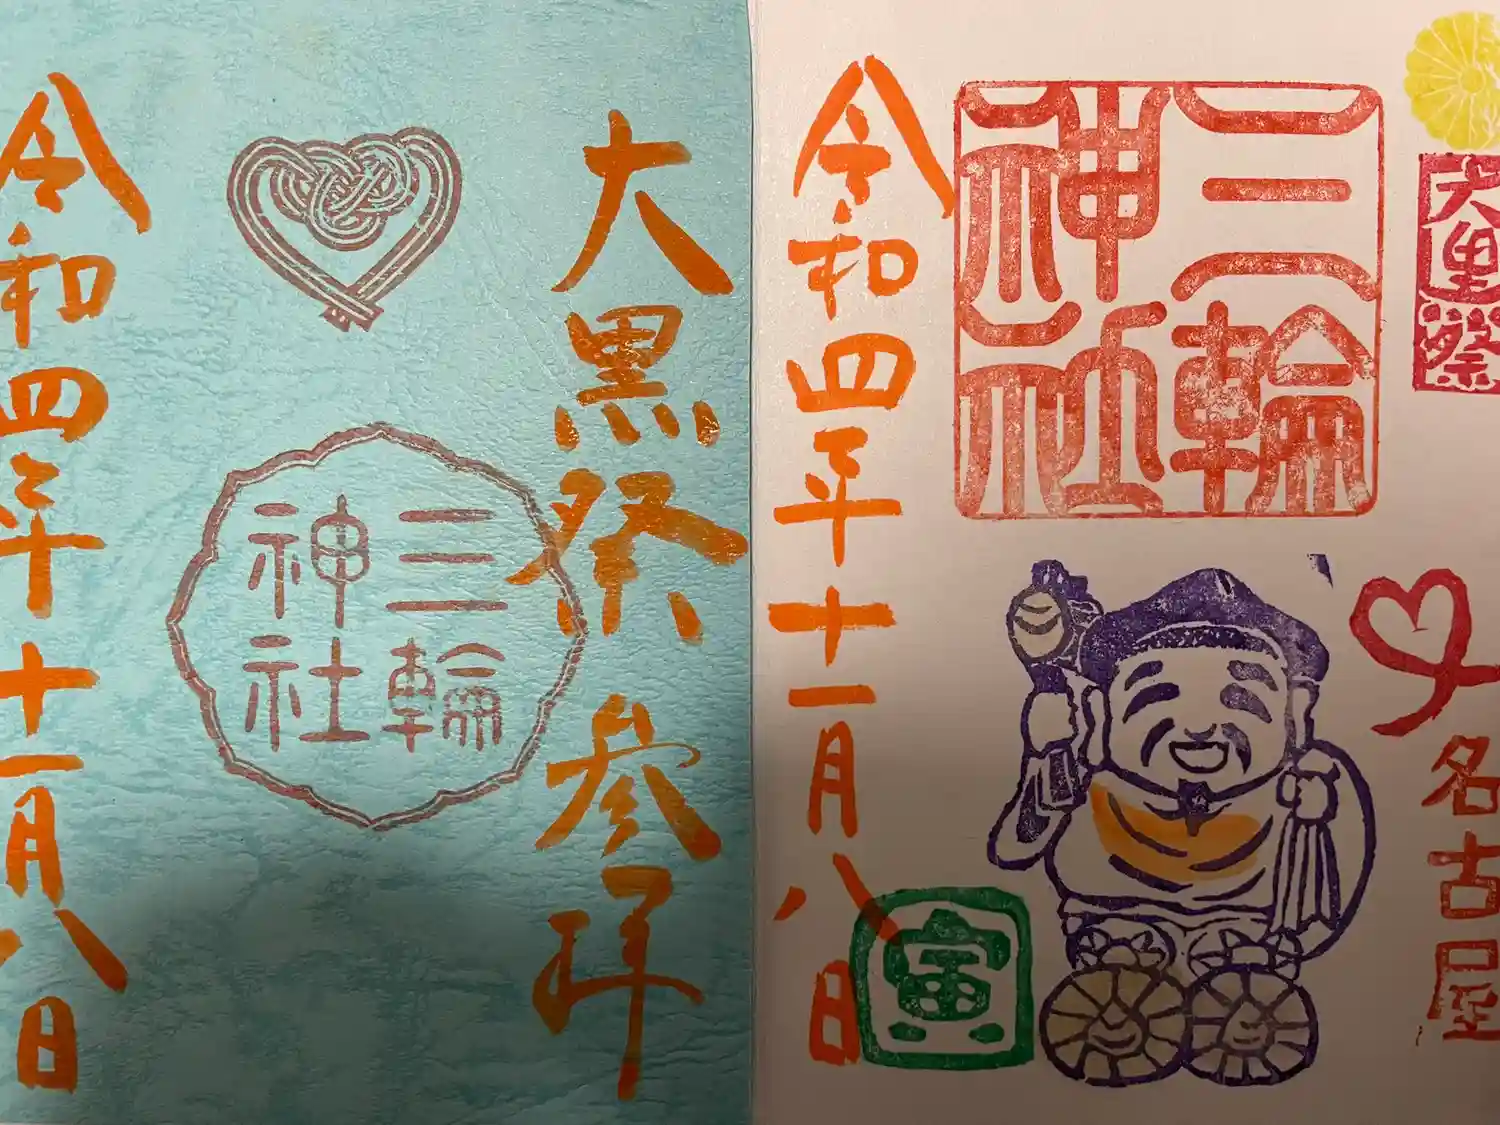 大黒祭 参拝
三輪
神社
令和四年十一月八日
大黒祭
名古屋
三輪
神社
寅
令和四年十一月八日